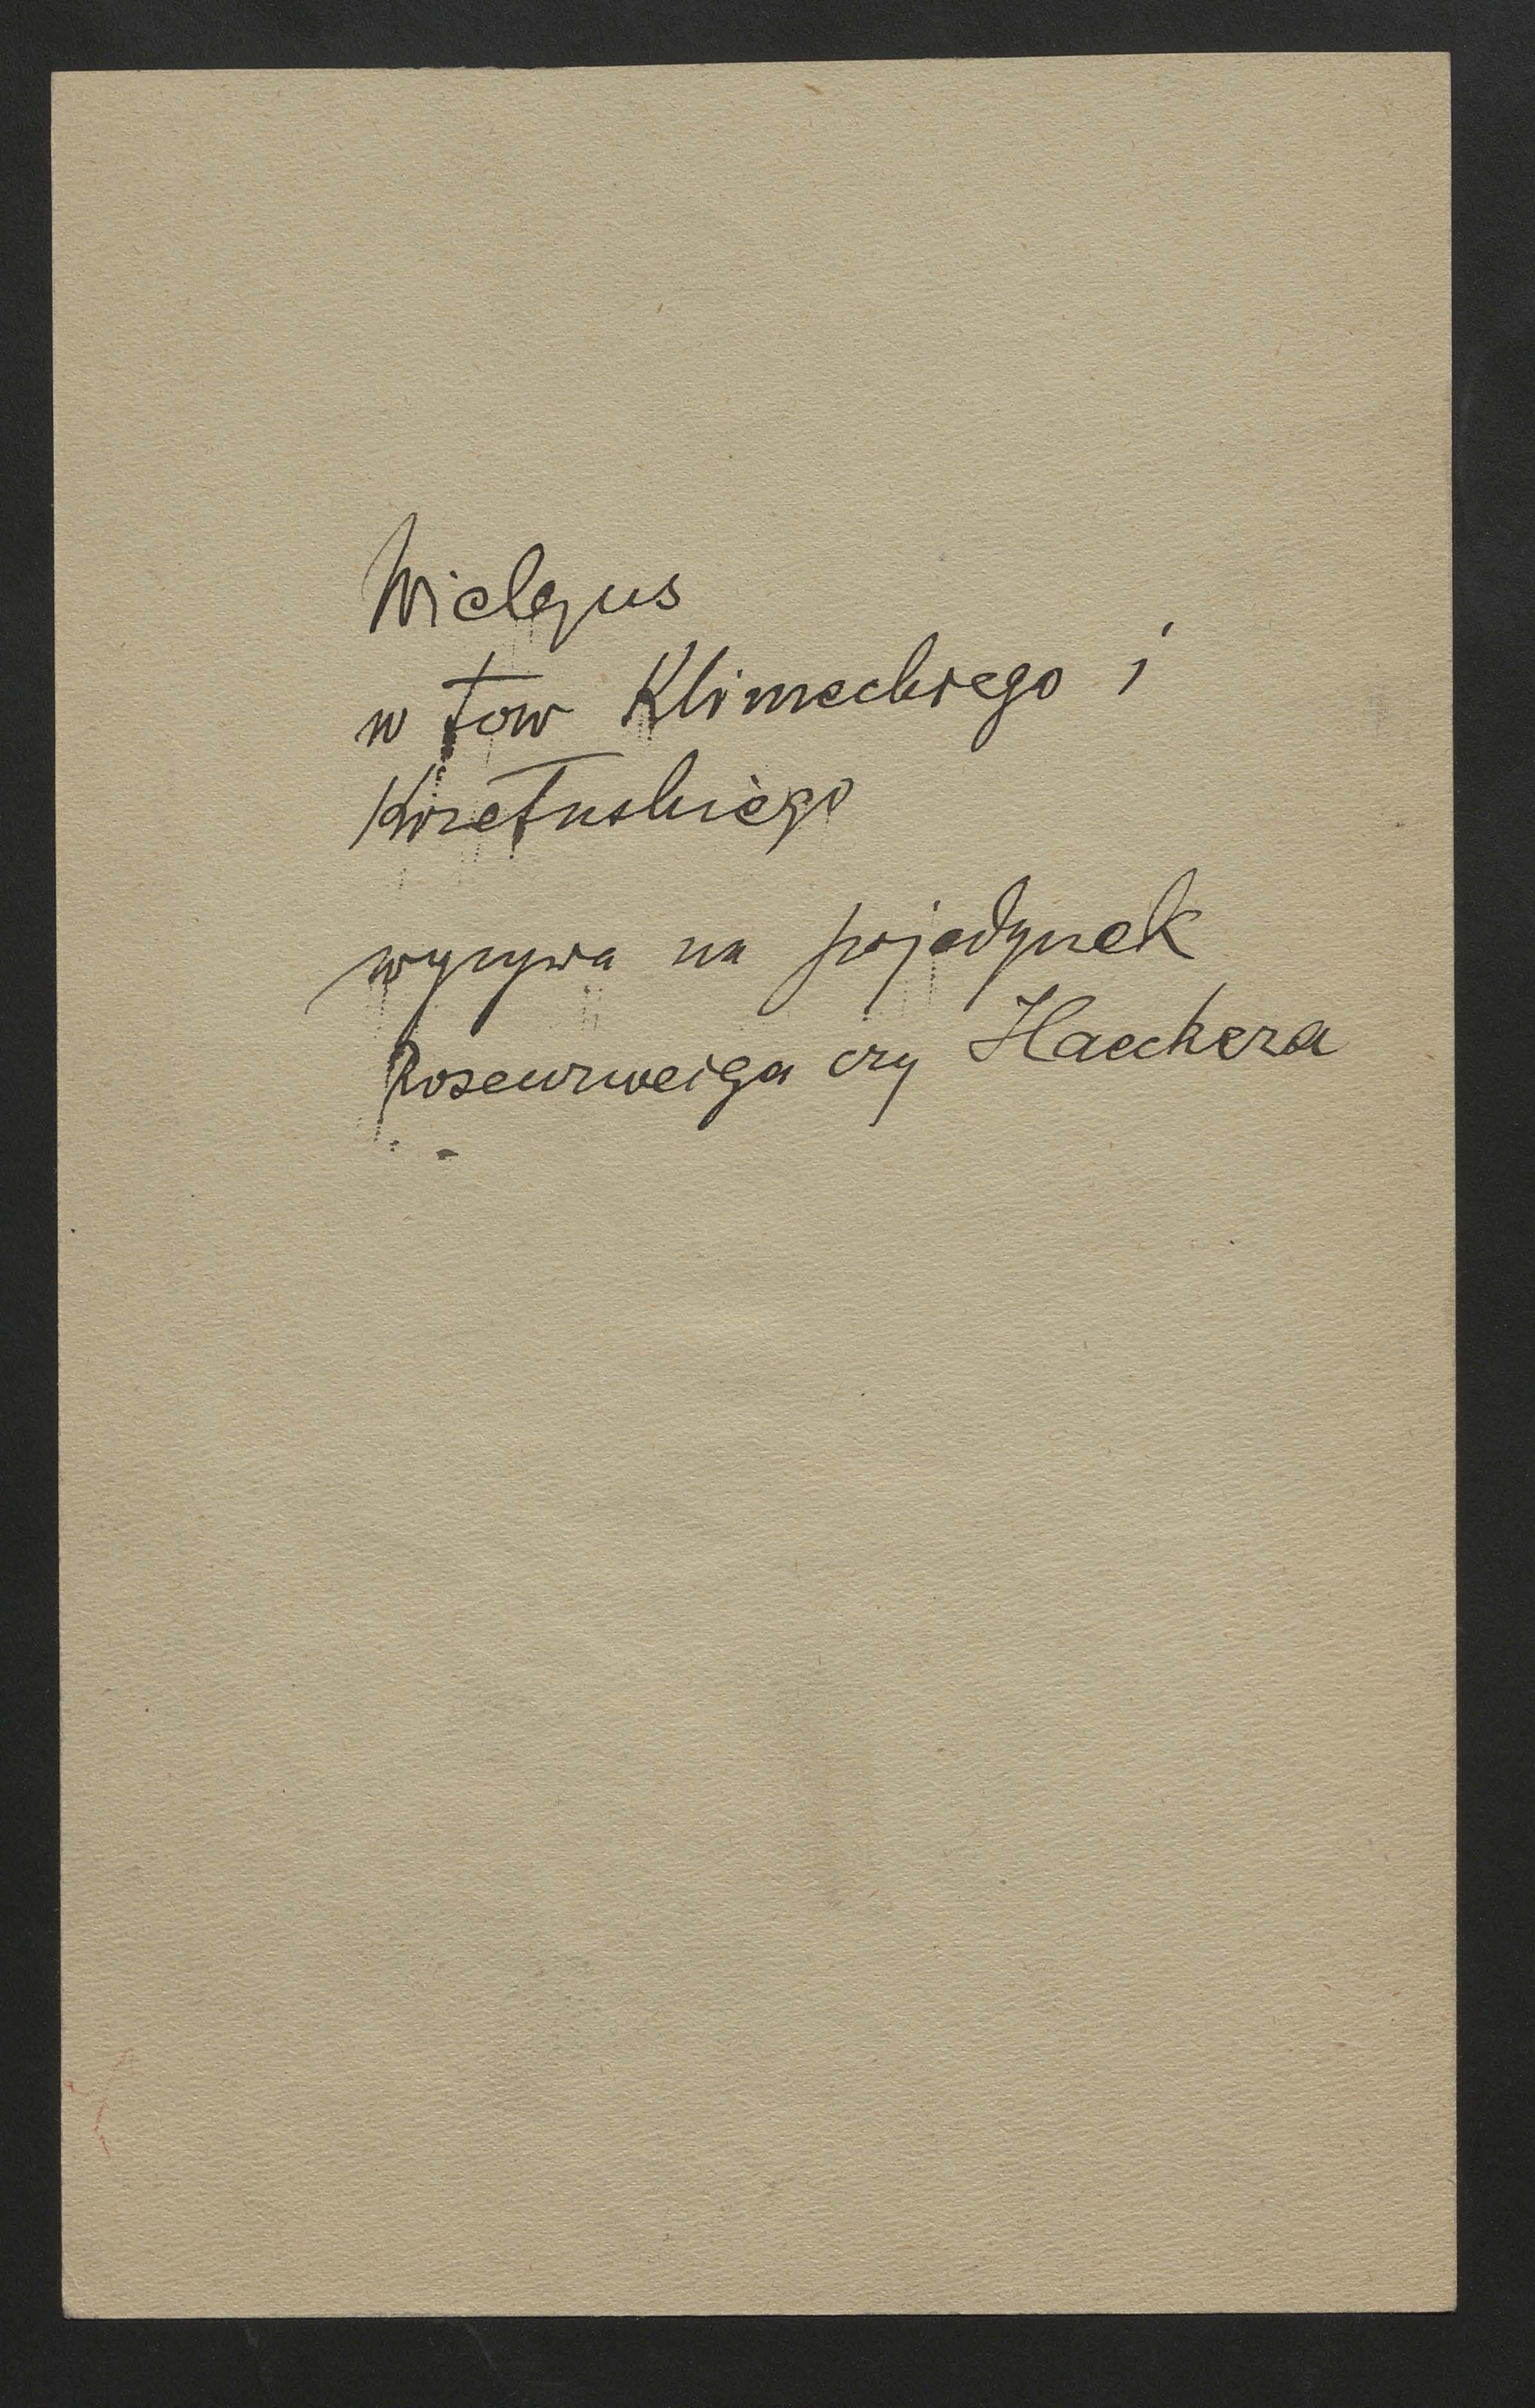 Wielgus
w tow Klimeckiego i
wyzywa na pojedynek
Rosenzweiga czy Haeckera